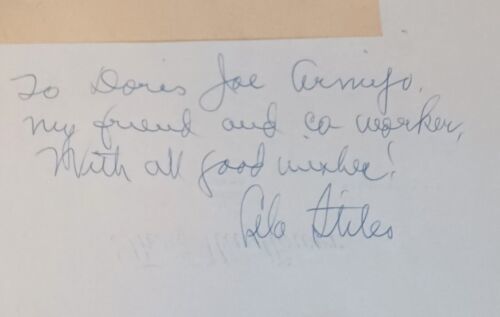 To Doris Joe Armijo,
my friend and co worker,
With all good wishes!
Stiles